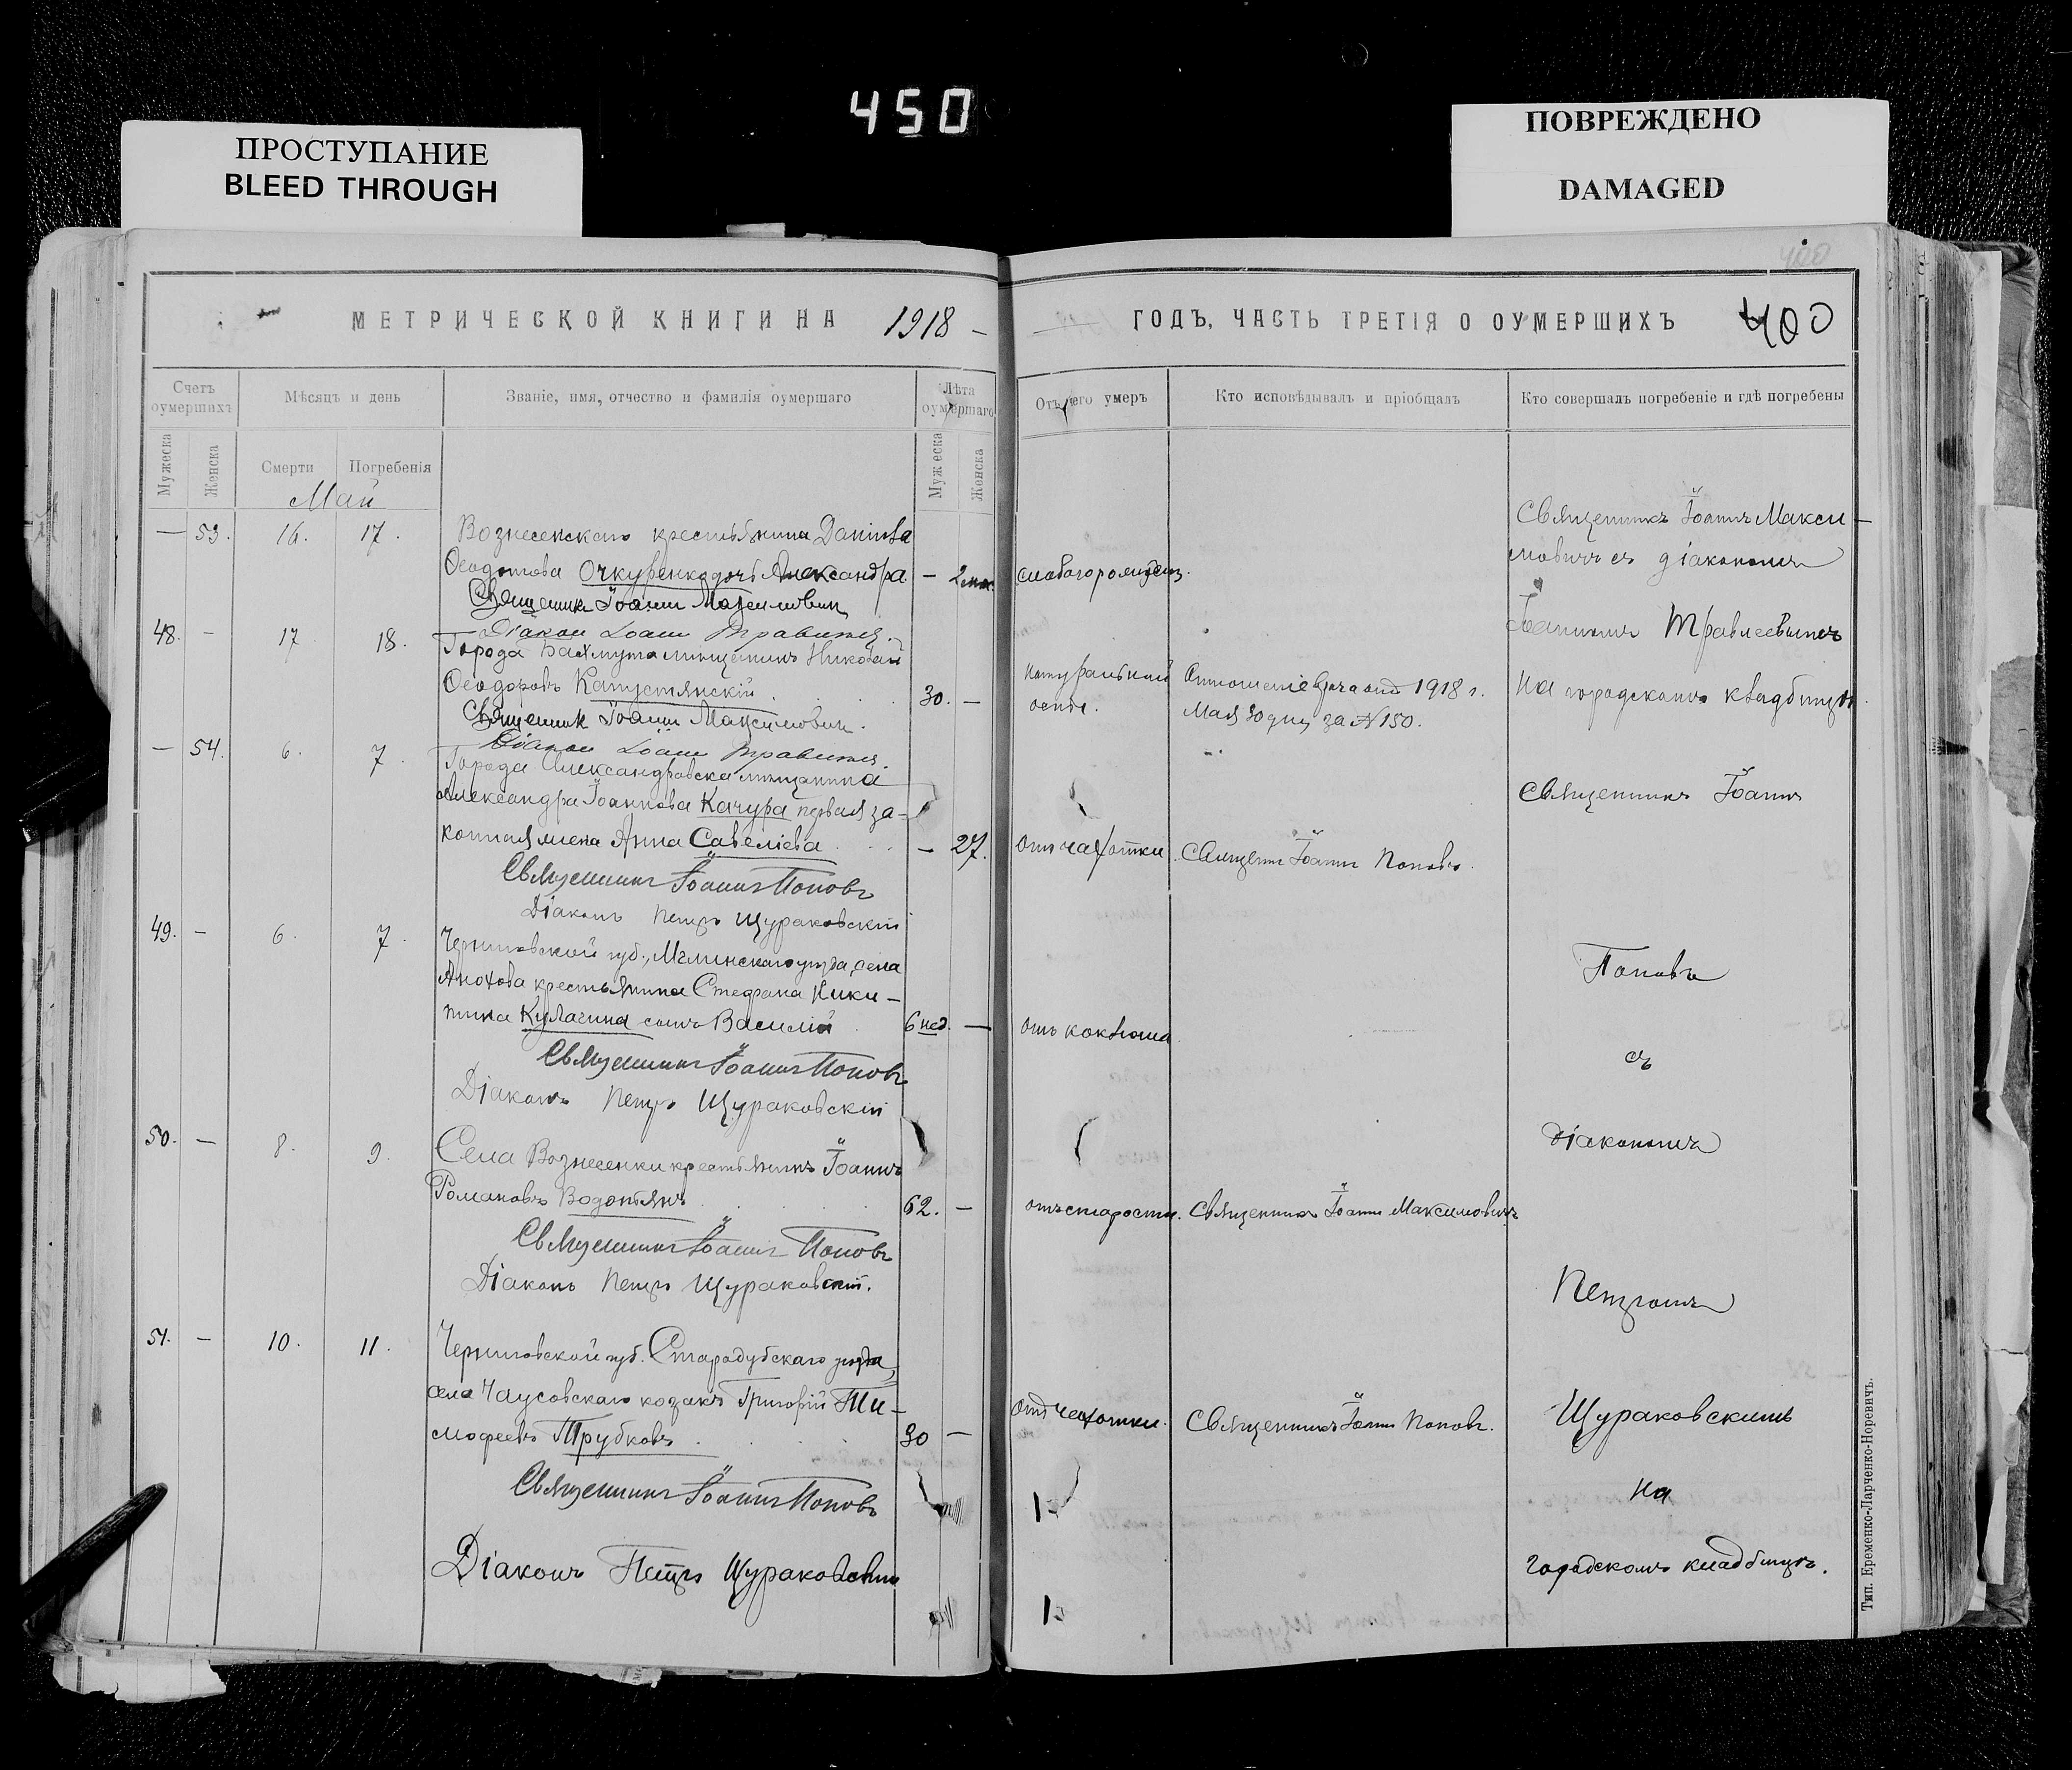 450
ПРОСТУПАНИЕ
BLEED THROUGH
ПОВРЕЖДЕНО
DAMAGED
400
МЕТРИЧЕСКОЙ КНИГИ НА 1918 –
ГОДЪ, ЧАСТЬ ТРЕТІЯ О ОУМЕРШИХЪ 400
Счетъ оумершихъ
Мѣсяцъ и день
Званіе, имя, отчество и фамилія оумершаго
Лѣта оумершаго
Отъ чего умеръ
Кто исповѣдывалъ и пріобщалъ
Кто совершалъ погребеніе и гдѣ погребены
Мужеска
Женска
Смерти
Погребенія
Мужеска
Женска
Май
— 53. 16. 17.
Вознесенскаго крестьянина Даніила
Ѳеодотова Очкуренко дочь Александра. – 2 мѣс.
Священник Іоанн Максимович
Діакон Іоанн
48. – 17 18.
Города Бахмута мѣщанинъ Николай
Ѳеодоровъ Капустянскій 30. –
натуральной
оспы.
Отношеніе врача отъ 1918 г.
Мая 30 дня за № 150.
Священник Іоанн Максимович.
Діакон Іоанн
Священникъ Іоаннъ Макси–
мовичъ съ діакономъ
Іоанномъ
на городскомъ кладбищѣ.
— 54. 6. 7.
Города Александровска мѣщанина
Александра Іоаннова Качура первая за–
конная жена Анна Савеліева – 27.
отъ чахотки.
Священ Іоаннъ Поповъ.
Священникъ Іоаннъ Поповъ
Діаконъ Петръ Щураковскій
49. – 6. 7.
Черниговской губ., Мглинскаго уѣзда, села
Анохова крестьянина Стефана Ники–
тина Кулагина сынъ Василій 6 нед. —
отъ коклюша
Священникъ Іоаннъ Поповъ
Діаконъ Петръ Щураковскій
50. – 8. 9.
Села Вознесенки крестьянинъ Іоаннъ
Романовъ Водопьянъ 62. –
отъ старости.
Священникъ Іоаннъ Максимовичъ
Священникъ Іоаннъ Поповъ
Діаконъ Петръ Щураковскій.
51. – 10. 11.
Черниговской губ. Стародубскаго уѣзда,
села Чаусовскаго козакъ Григорій Ти–
мофеевъ Трубковъ 30 –
отъ чахотки.
Священникъ Іоаннъ Поповъ.
Священникъ Іоаннъ Поповъ
Діаконъ Петръ Щураковскій
Священникъ Іоаннъ
Поповъ
съ
діакономъ
Петромъ
Щураковскимъ
на
городскомъ кладбищѣ.
Тип. Еременко-Ларченко-Норевичъ.